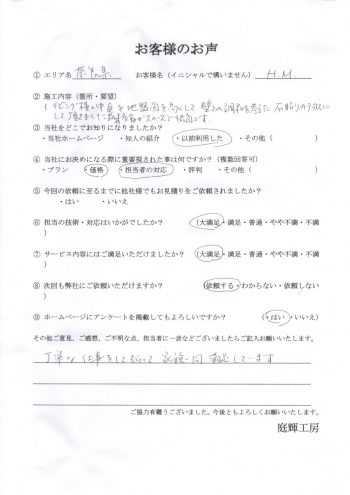 お客様のお声
① エリア名 奈良県 お客様名（イニシャルで構いません） H.M
② 施工内容（箇所・要望）
③ 当社をどこでお知りになりましたか？
・当社ホームページ ・知人の紹介 ・以前利用した ・その他（ ）
④ 当社にお決めになる際に重要視された事は何ですか？（複数回答可）
・プラン ・価格 ・担当者の対応 ・評判 ・その他（ ）
⑤ 今回の依頼に至るまでに他社様でもお見積りをご依頼されましたか？
・はい ・いいえ
⑥ 担当の技術・対応はいかがでしたか？ （大満足・満足・普通・やや不満・不満
）
⑦ サービス内容にはご満足いただけましたか？ （大満足・満足・普通・やや不満・不満
）
⑧ 次回も弊社にご依頼いただけますか？ （依頼する・わからない・依頼しない
）
⑨ ホームページにアンケートを掲載してもよろしいですか？ （・はい ・いいえ）
その他ご意見、ご感想、ご不明な点、担当者に一言などございましたらご記入お願いします。
丁寧な仕事をしてもらって 家族一同 満足しています
ご協力有難うございました。今後ともよろしくお願いいたします。
庭輝工房